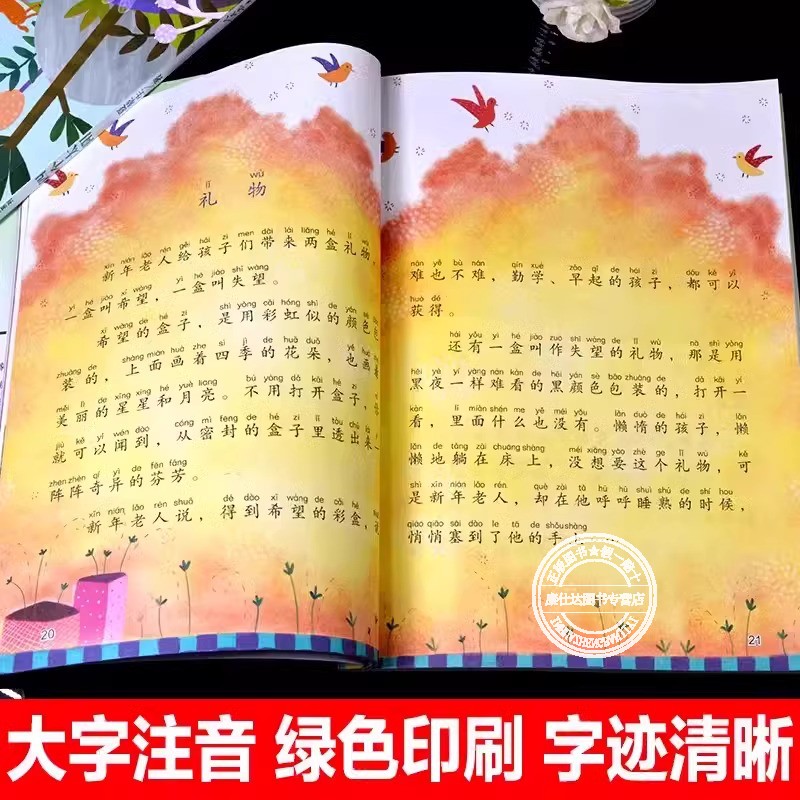 lǐ wù
礼物
xīn nián lǎo rén gěi hái zi men dài lái liǎng hé lǐ wù
新年老人给孩子们带来两盒礼物，
yì hé jiào shī wàng
一盒叫希望，一盒叫失望。
xī wàng de hé zi shì yòng cǎi hóng shì de yán sè
希望的盒子，是用彩虹似的颜色
zhuāng de shàng miàn huà zhe sì jì de huā duǒ
装的，上面画着四季的花朵，也画
měi lì de xīng xīng hé yuè liang bú yòng dǎ kāi hé zi
美丽的星星和月亮。不用打开盒子，
jiù kě yǐ wén dào cóng mì fēng de hé zi lǐ tòu chū lái
就可以闻到，从密封的盒子里透出来一
zhèn zhèn qí yì de fēn fāng
阵阵奇异的芬芳。
xīn nián lǎo rén shuō dé dào xī wàng de cǎi hé
新年老人说，得到希望的彩盒，
20
nán yě bù nán qín xué zǎo qǐ de hái zi dōu kě yǐ
难也不难，勤学、早起的孩子，都可以
huò dé
获得。
hái yǒu yì hé jiào zuò shī wàng de lǐ wù nà shì yòng
还有一盒叫作失望的礼物，那是用
hēi yè yí yàng nán kàn de hēi yán sè bāo zhuāng de dǎ kāi yí
黑夜一样难看的黑颜色包装的，打开一
kàn lǐ miàn shén me yě méi yǒu lǎn duò de hái zi lǎn
看，里面什么也没有。懒惰的孩子，懒
lǎn de tǎng zài chuáng shàng méi xiǎng yào zhè ge lǐ wù kě
懒地躺在床上，没想要这个礼物，可
shì xīn nián lǎo rén què zài tā hū hū shuì shú de shí hou
是新年老人，却在他呼呼睡熟的时候，
qiāo qiāo sāi dào le tā de shǒu shàng
悄悄塞到了他的手
21
正版图书★假一赔十
康仕达图书专营店
大字注音 绿色印刷 字迹清晰